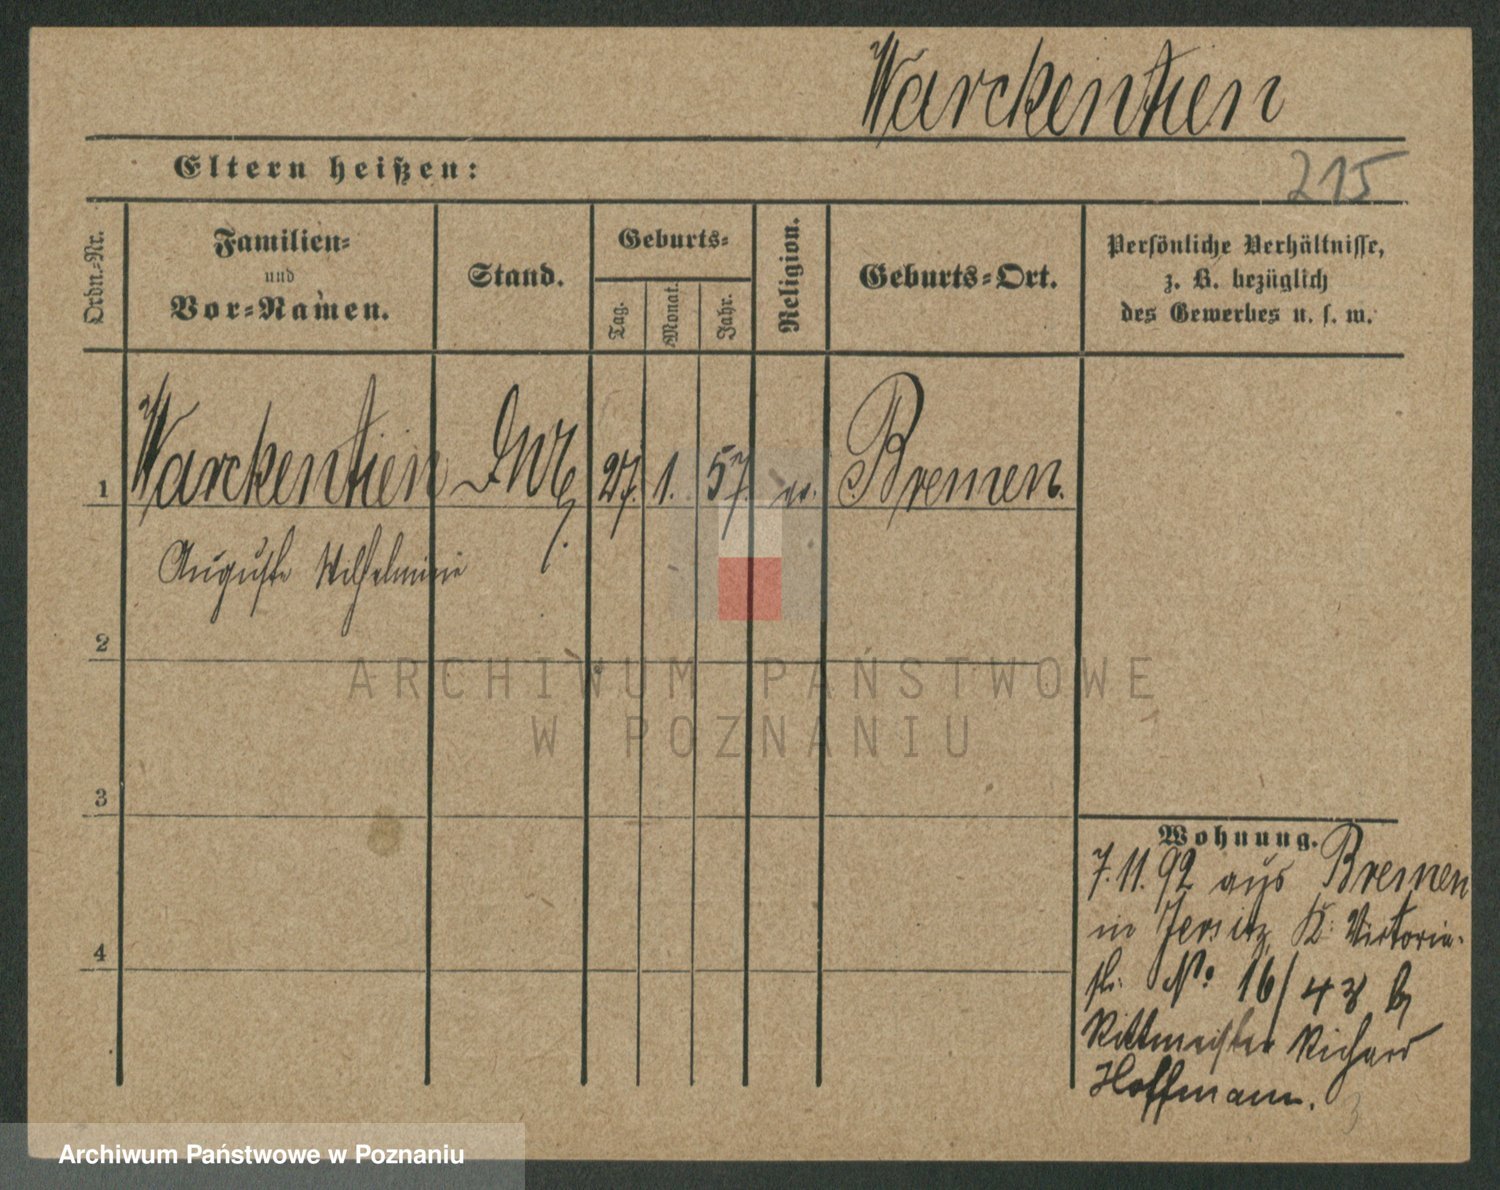 Warckentien
Eltern heißen:
215
Ordn.-Nr.
Familien-
und
Vor-Namen.
Stand.
Geburts-
Tag.
Monat.
Jahr.
Religion.
Geburts-Ort.
Persönliche Verhältnisse,
z. B. bezüglich
des Gewerbes u. s. w.
1 Warckentien 27. 1. 57. ev. Bremen.
Auguste Wilhelmine
2
ARCHIWUM PAŃSTWOWE
W POZNANIU
3
Wohnung.
7. 11. 92 aus Bremen
in Jersitz K. Victoria-
str. No. 16/
4
Rittmeister Richard
Hoffmann.
Archiwum Państwowe w Poznaniu